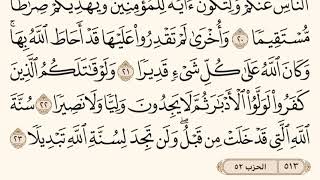 ٱلنَّاسِ عَنكُمْ وَلِتَكُونَ ءَايَةً لِّلْمُؤْمِنِينَ وَيَهْدِيَكُمْ صِرَٰطًا
مُّسْتَقِيمًا ٢٠ وَأُخْرَىٰ لَمْ تَقْدِرُوا۟ عَلَيْهَا قَدْ أَحَاطَ ٱللَّهُ بِهَا ۚ
وَكَانَ ٱللَّهُ عَلَىٰ كُلِّ شَىْءٍ قَدِيرًا ٢١ وَلَوْ قَٰتَلَكُمُ ٱلَّذِينَ
كَفَرُوا۟ لَوَلَّوُا۟ ٱلْأَدْبَٰرَ ثُمَّ لَا يَجِدُونَ وَلِيًّا وَلَا نَصِيرًا ٢٢ سُنَّةَ
ٱللَّهِ ٱلَّتِى قَدْ خَلَتْ مِن قَبْلُ ۖ وَلَن تَجِدَ لِسُنَّةِ ٱللَّهِ تَبْدِيلًا ٢٣
٥١٣ الحزب ٥٢